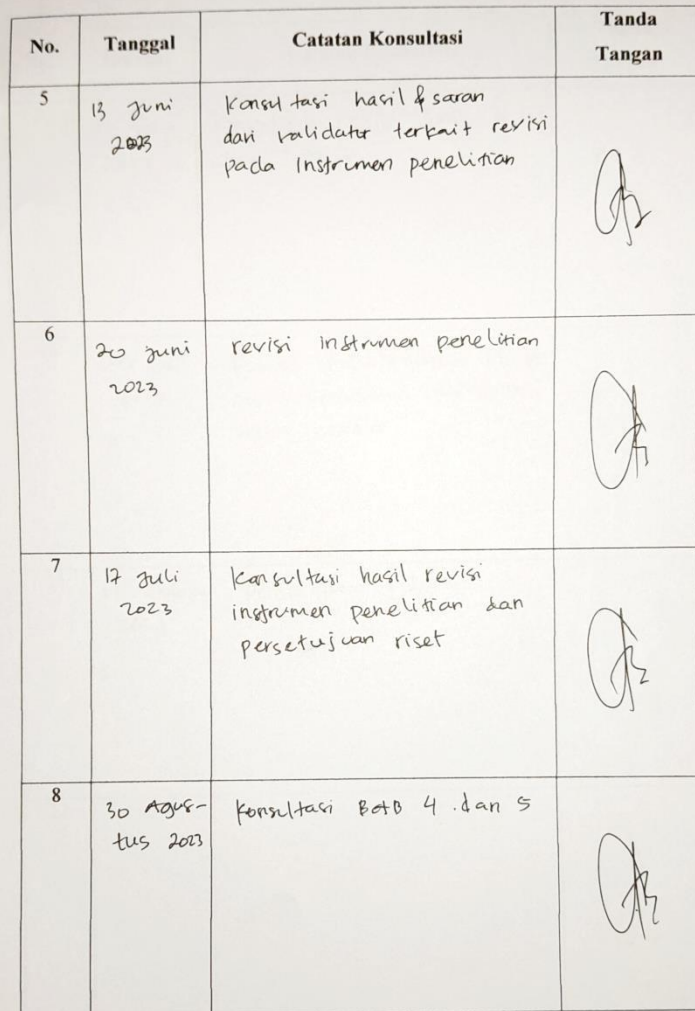 No. Tanggal Catatan Konsultasi Tanda Tangan
5
13 Juni
2023
Konsultasi hasil & saran
dari validator terkait revisi
pada Instrumen penelitian
6
20 Juni
2023
revisi instrumen penelitian
7
17 Juli
2023
Konsultasi hasil revisi
instrumen penelitian dan
persetujuan riset
8
30 Agus-
tus 2023
Konsultasi BAB 4 dan 5